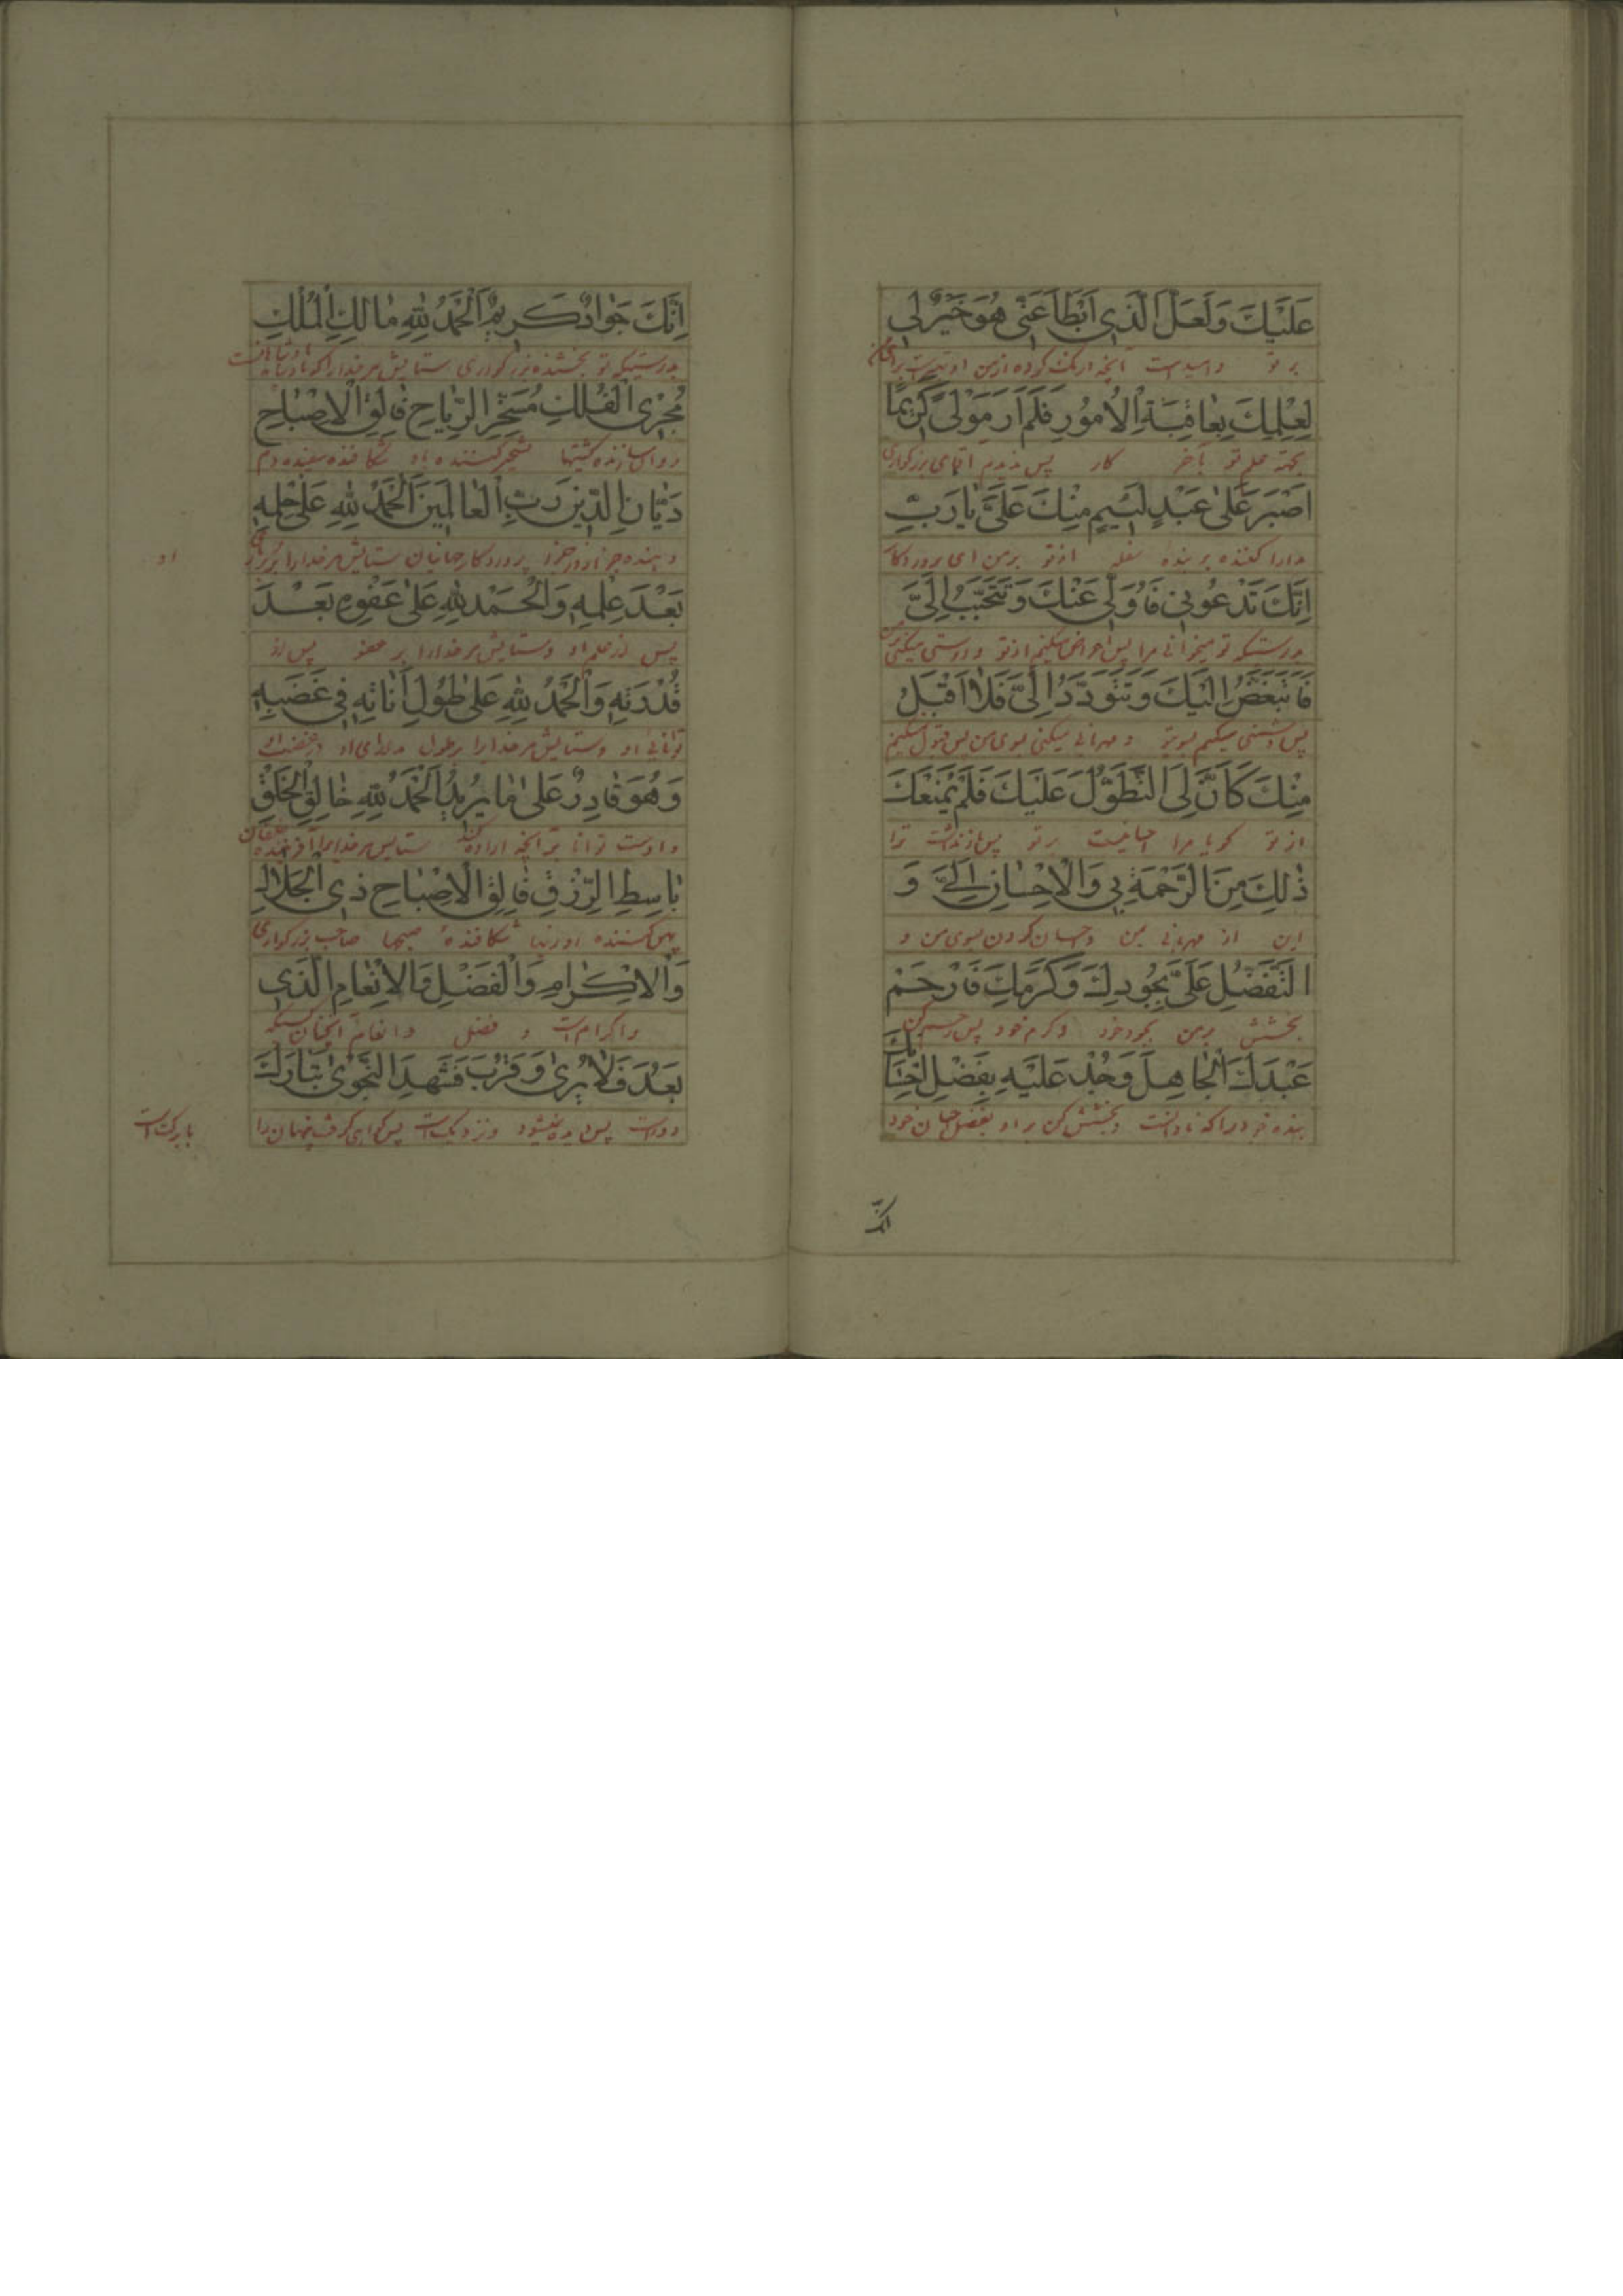 عَلَيْكَ وَلَعَلَّ الَّذي اَبْطَأَ عَنّي هُوَ خَيْرٌ لي
بر تو
لِعِلْمِكَ بِعاقِبَةِ الْاُمُورِ فَلَمْ اَرَ مَوْلىً كَريمًا
بجهة علم تو بآخر کار پس ندیدم آقای بزرکواری
اَصْبَرَ عَلى عَبْدٍ لَئيمٍ مِنْكَ عَلَيَّ يا رَبِّ
مدارا کننده بر بنده سفله از تو بر من ای پروردکار
اِنَّكَ تَدْعُوني فَاُوَلّي عَنْكَ وَتَتَحَبَّبُ اِلَيَّ
بدرستیکه تو میخوانی مرا پس اعراض میکنم از تو و دوستی میکنی
فَاَتَبَغَّضُ اِلَيْكَ وَتَتَوَدَّدُ اِلَيَّ فَلا اَقْبَلُ
پس دشمنی میکنم بسوی تو و مهربانی میکنی بسوی من پس قبول نمیکنم
مِنْكَ كَاَنَّ لِيَ التَّطَوُّلَ عَلَيْكَ فَلَمْ يَمْنَعْكَ
از تو کویا مرا بر تو پس باز نداشت ترا
ذٰلِكَ مِنَ الرَّحْمَةِ بي وَالْاِحْسانِ اِلَيَّ وَ
این از مهربانی بمن و احسان کردن بسوی من و
التَّفَضُّلِ عَلَيَّ بِجُودِكَ وَكَرَمِكَ فَارْحَمْ
بخشش بر من بجود خود و کرم خود پس رحم کن
عَبْدَكَ الْجاهِلَ وَجُدْ عَلَيْهِ بِفَضْلِ اِحْسانِكَ
بنده خود را که نادانست و بخشش کن بر او بفضل احسان خود
انک
اِنَّكَ جَوادٌ كَريمٌ اَلْحَمْدُ لِلّٰهِ مالِكِ الْمُلْكِ
بدرستیکه تو بخشنده بزرکواری ستایش مر خدا را که
مُجْرِي الْفُلْكِ مُسَخِّرِ الرِّياحِ فالِقِ الْاِصْباحِ
روان سازنده کشتیها تسخیر کننده باد شکافنده سفیده دم
دَيّانِ الدّينِ رَبِّ الْعالَمينَ اَلْحَمْدُ لِلّٰهِ عَلى حِلْمِهِ
دهنده جزا روز جزا پروردکار جهانیان ستایش مر خدا را بر
او
بَعْدَ عِلْمِهِ وَالْحَمْدُ لِلّٰهِ عَلى عَفْوِهِ بَعْدَ
پس از علم او و ستایش مر خدا را بر عفو پس از
قُدْرَتِهِ وَالْحَمْدُ لِلّٰهِ عَلى طُولِ اَناتِهِ في غَضَبِهِ
توانائی او و ستایش مر خدا را بر طول مدارای او در غضب او
وَهُوَ قادِرٌ عَلى ما يُريدُ اَلْحَمْدُ لِلّٰهِ خالِقِ الْخَلْقِ
و اوست توانا بر آنچه اراده کند ستایش مر خدایرا آفریننده خلقان
باسِطِ الرِّزْقِ فالِقِ الْاِصْباحِ ذِي الْجَلالِ
پهن کننده روزیها شکافنده صبحها صاحب بزرکواری
وَالْاِكْرامِ وَالْفَضْلِ وَالْاِنْعامِ الَّذي
و اکرام است و فضل و انعام آنچنان کسیکه
بَعُدَ فَلا يُرى وَقَرُبَ فَشَهِدَ النَّجْوى تَبارَكَ
دور است پس دیده نمیشود و نزدیک است پس کواهی کرفت پنهان را
با برکت است